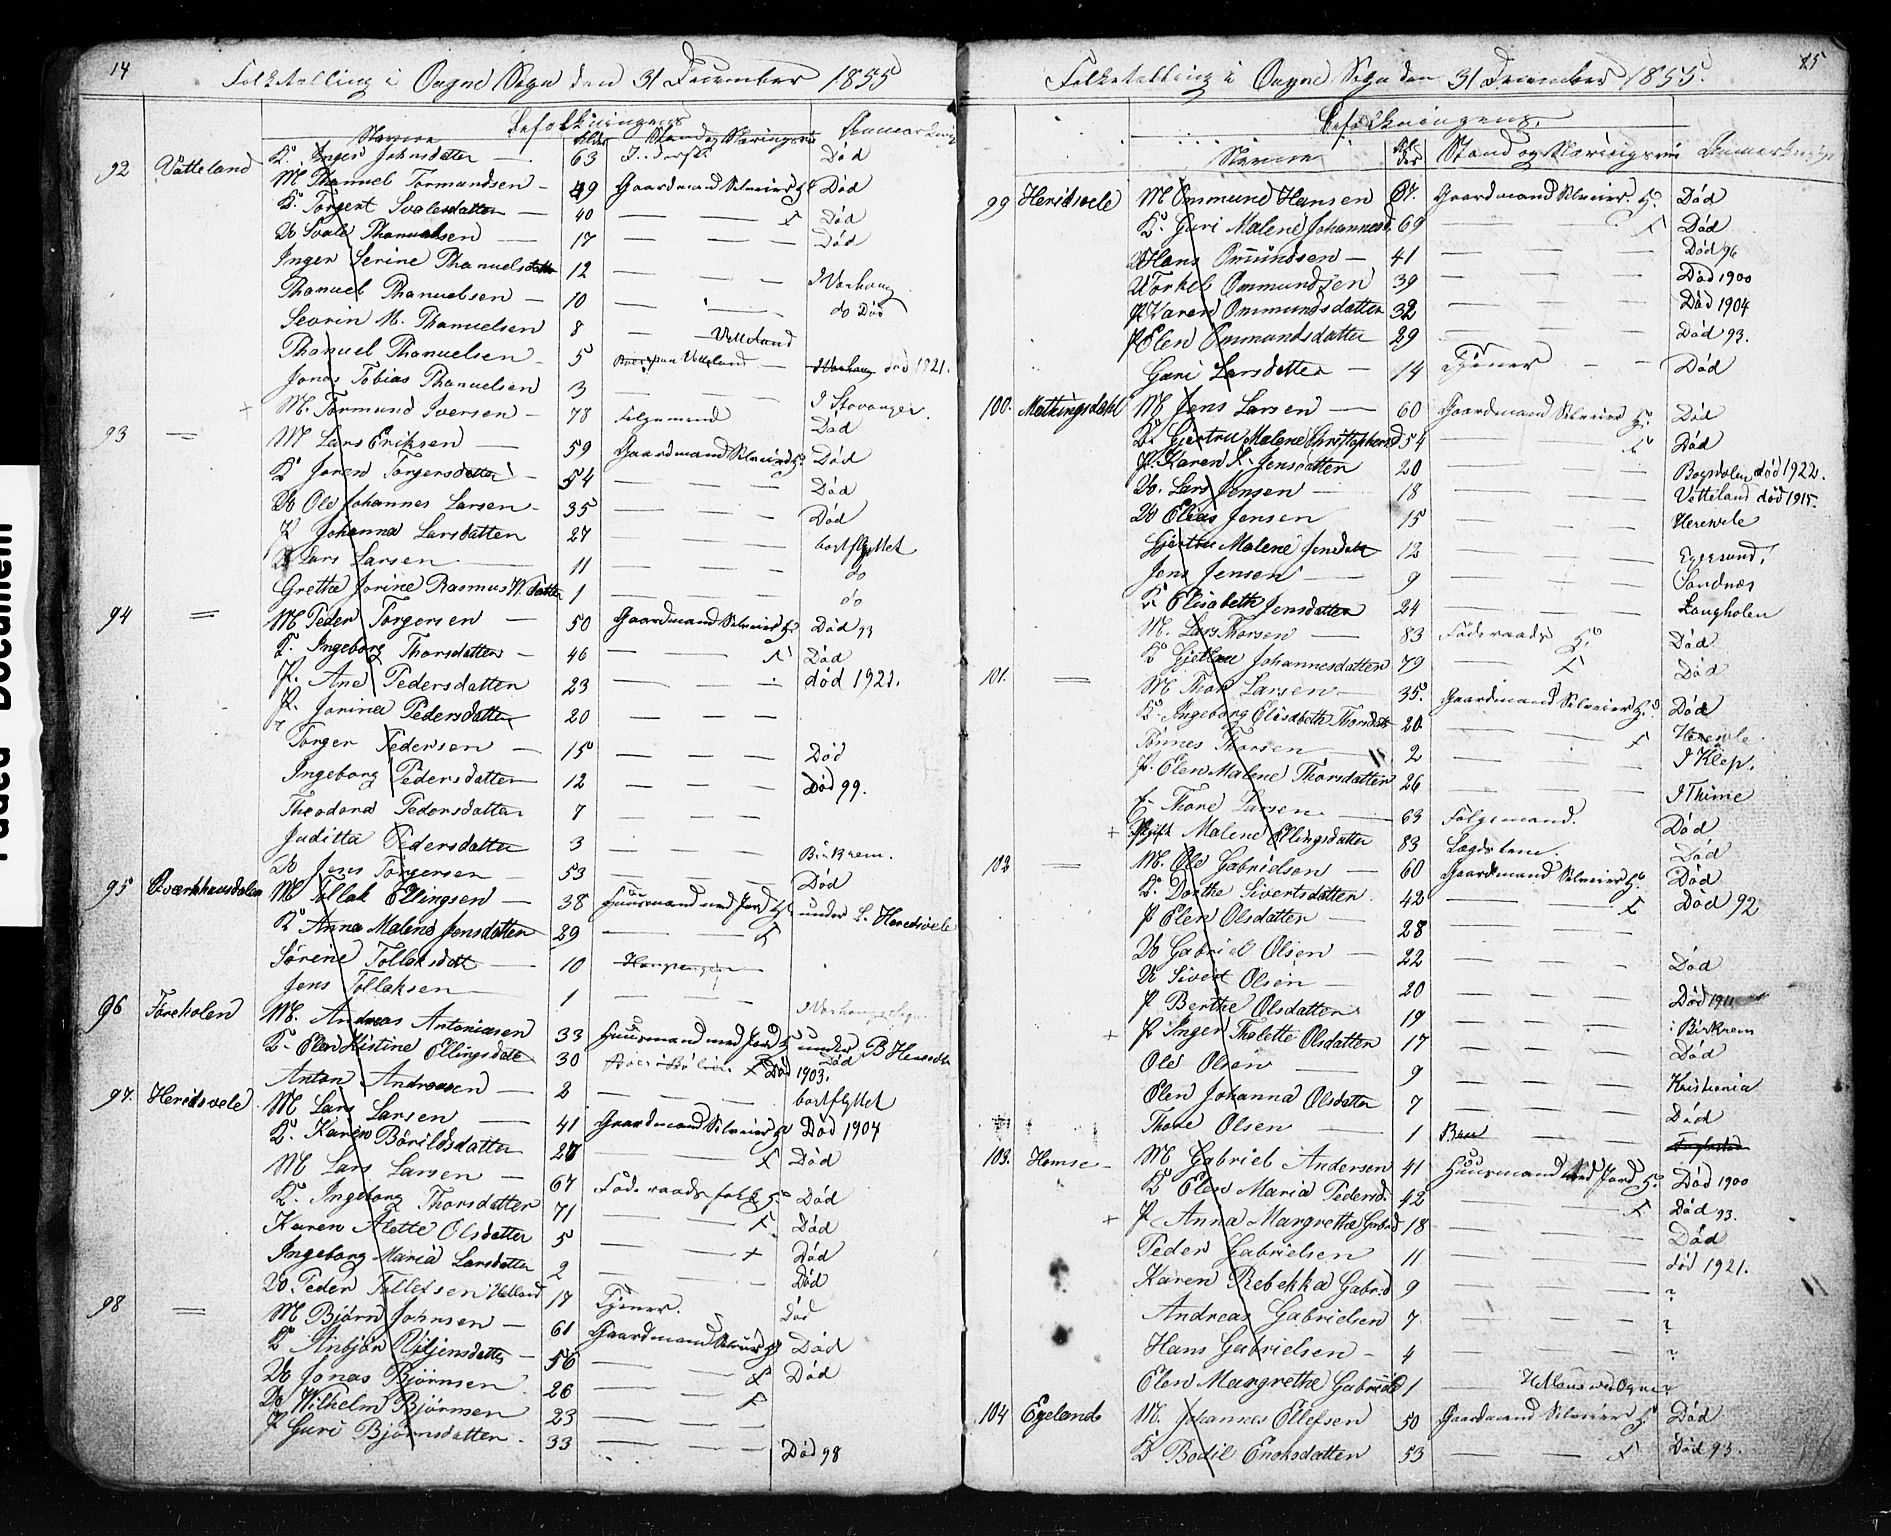 14
Folketælling i Ougne Sogn den 31 December 1855
Befolkningens
Navne Alder Stand og Næringsvei Anmærkning
K. Inger Johnsdatter 63 Død
92 Vatteland M Thanuel Tormundsen 49 Gaardmand Selveier G Død
K. Torgert Svalesdatter 40 — — — x Død
Uo Svale Thanuelsen 17 — — — Død
Inger Serine Thanuelsdatter 12 — — —
Thanuel Thanuelsen 10 — — I Varhoug
Sevrin M. Thanuelsen 8 — Vatteland do Død
Thanuel Thanuelsen 5 Boer paa Vatteland — I Varhoug død 1921.
Jonas Tobias Thanuelsen 3 — — —
+ M. Tormund Iversen 78 Folgemand I Stavanger
93 = M Lars Eriksen 59 Gaardmand Selveier G Død
K Joren Torgersdatter 54 — — — Død
Uo Ole Johannes Larsen 35 — — — Død
P Johanna Larsdatter 27 — — — Død
Lars Larsen 11 — — — bortflyttet
Grethe Jorine Rasmus N. datter 1 — — — do
94 = M Peder Torgersen 50 Gaardmand Selveier G Død 93
K. Ingeborg Thorsdatter 46 — — x Død
P. Ane Pedersdatter 23 — — — død 1921.
P. Jorine Pedersdatter 20 — — —
Torger Pedersen 15 — — — Død
Ingeborg Pedersdatter 12 — — — Død 99.
Theodora Pedersdatter 7 — — —
Juditta Pedersdatter 3 — — — Birkrem.
Uo Jens Torgersen 53 — — — Død
95 Qværkhausdalen M Tollak Ellingsen 38 Huusmand med Jord G under L. Heredsvele
K Anna Malene Jensdatter 29 — — x
Sørine Tollaksdatt 10
Jens Tollaksen 1 — — —
96 Foreholen M. Andreas Antoniasen 33 Huusmand med Jord G under B Heredsv
K. Elen Kistine Ellingsdatt 30 x Død 1903. Død
Anton Andreasen 2 — — — bortflyttet
97. Heridsvele M Lars Larsen 41 Gaardmand Selveier G Død 1904
K. Karen Børildsdatter 27 — — x Død
M Lars Larsen 67 Føderaadsfolk G Død
K. Ingeborg Thorsdatter 71 — — x Død
Karen Alette Olsdatter 5 — — + Død
Ingeborg Maria Larsdatter 2 — — — Død
Uo Peder Tollefsen Helland 17 Tjener. Død
98 = M Bjørn Johnsen 61 Gaardmand Selveier G Død
K Anbjør Viljensdatter 56 — — x Død
Uo Jonas Bjørnsen 26 — — x
Uo Wilhelm Bjørnsen 23 — — —
P Guri Bjørnsdatter 33 Død 98
15
Folketælling i Ougne Sogn den 31 December 1855.
Befolkningens.
Navne Alder Stand og Næringsvei Anmærkning
99 Heridsvele M Ommund Hansen 67. Gaardmand Selveier. G. Død
K. Guri Malene Johannesd. 69 — — x Død
U Hans Ommundsen 41 — — — Død 96
U Torkel Ommundsen 39 — — — Død 1900
P Karen Ommundsdatter 32 — — — Død 1904
P Elen Ommundsdatter 29 — — — Død 93.
Guri Larsdatter 14 Tjener — — Død
100. Matkingsdahl M Jens Larsen 60 Gaardmand Selveier G. Død
K. Gjertru Malene Christophersd 54 — — x Død
P. Karen K. Jensdatter 20 — — — Bogsholen død 1922.
Uo. Lars Jensen 18 — — — Vatteland død 1915.
Uo Elias Jensen 15 — — — Herevele
Gjertru Malene Jensdatt 12 — — — Egersund.
Jens Jensen 9 — — — Sandnæs
K Elisabeth Jensdatter 24 — — — Langholen
M. Lars Thorsen 83 Føderaads G. Død
K Gjertru Johannesdatter 79 — x Død
101. = M Thore Larsen 35. Gaardmand Selveier G. Død
K. Ingeborg Elisabeth Thorsdatt 20 — — x Herevele
Tønnes Thorsen 2 — — — I Klep.
P. Elen Malene Thorsdatter 26 — — — I Thime
E. Thore Larsen 63 Følgemand. Død
+ Malene Ellingsdatter 83 Lægdslem. Død
102 = M. Ole Gabrielsen 60 Gaardmand Selveier G. Død
K. Dorthe Sivertsdatter 42 — — x Død 92
P Elen Olsdatter 28 — — —
Uo Gabriel Olsen 22 — — — Død
U Sivert Olsen 20 — — —
P Berthe Olsdatter 19 — — — Død 1911
+ P Inger Tholette Olsdatter 17 — — — i Birkrem
Ole Olsen 9 — — — Død
Elen Johanna Olsdatter 7 — — — Kristiania
Thore Olsen 1 — — — Død
103. Homse M Gabriel Andersen 41 Huusmand med Jord G. Død 1900
K Elen Maria Pedersd. 42 — — x Død 93.
+ P Anna Margrethe Gabrd 18 — — — Død
Peder Gabrielsen 11 — — — død 1921.
Karen Rebekka Gabrd 9 — — — ?
Andreas Gabrielsen 7 — — — ?
Hans Gabrielsen 4 — — — ?
Elen Margrethe Gabrield 1
104 Egeland M. Johannes Ellefsen 50 Gaardmand Selveier G Død
K Bodil Enoksdatter 53 — — x Død 93.